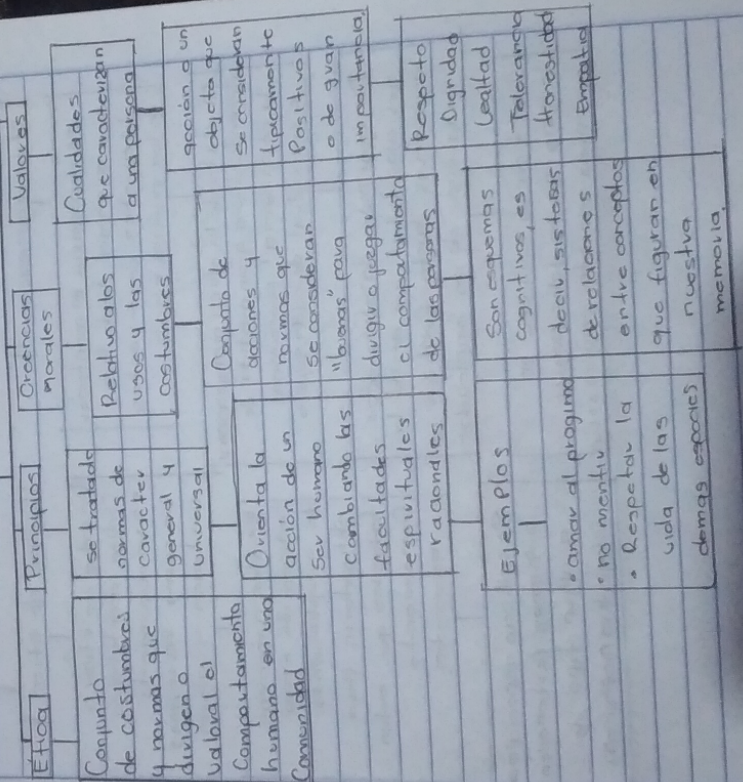 Etica
Conjunto
de costumbres
y normas que
dirigen o
valoral el
Comportamiento
humano en una
Comunidad
Principios
se tratade
normas de
caracter
general y
universal
Orienta la
acción de un
Ser humano
cambiando las
facultades
espirituales
racionales
EjEmPlos
• amar al progimo
• no mentir
• Respetar la
vida de las
demas especies
Creencias
morales
Relativo alos
usos y las
costumbres
Conjunto de
acciones y
normas que
se consideran
"buenas" para
dirigir o juzgar
el compatamiento
de las personas
Son esquemas
cognitivos, es
decir, sistemas
de relaciones
entre conceptos
que figuran en
nuestra
memoria.
Valores
Cualidades
que caracterizan
a una persona
acción o un
objeto que
se consideran
tipicamente
Positivos
o de gran
importancia.
Respeto
Dignidad
Lealtad
Tolerancia
Honestidad
Empatia